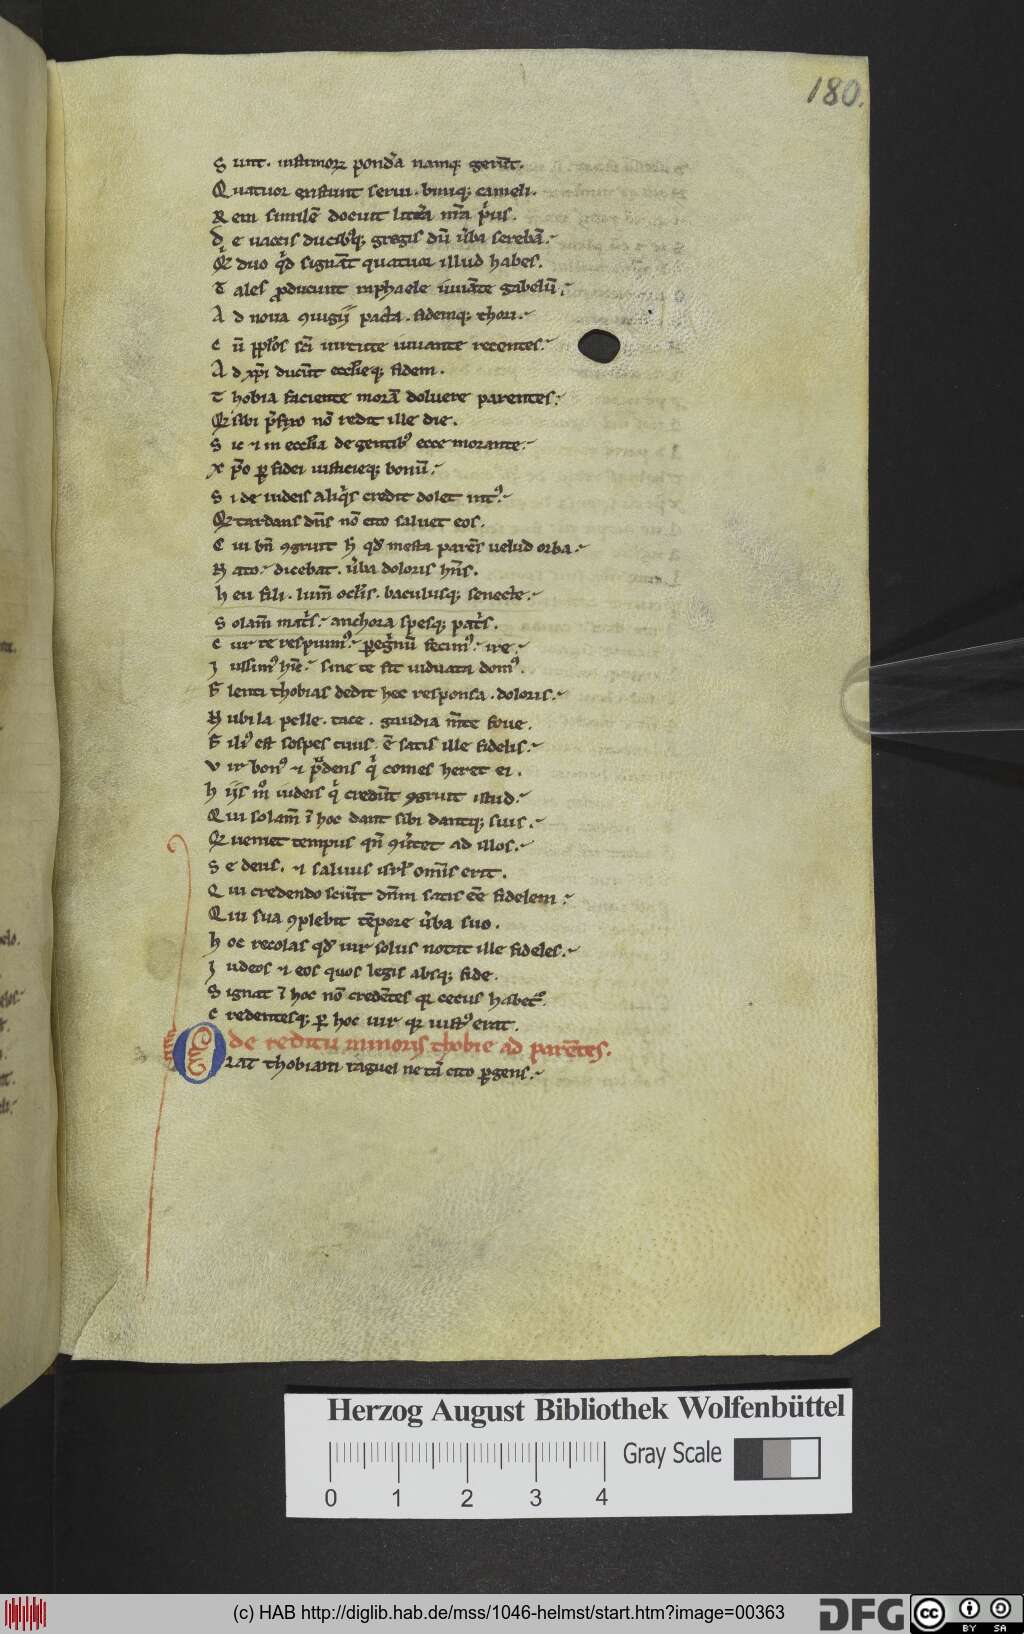 180.
S unt. iustimorꝝ pond̾a namq; gerūt.
Q uatuor existunt serui. biniq; cameli.
R em similē docuit litt̾a nr̄a p̾us.
d e uaccis ducib; gregis dū u̾ba serebā.
Q̾ duo qd̾ signāt quatuor illud habes.
T ales ꝓducunt raphaele iuuāte gabelū.
A d noua ꝯiugij pacta. fidemq; thori.
C ū ꝓphos sci uirtute iuuante recentes.
A d xp̄i ducūt ecclieq; fidem.
T hobia faciente morā doluere parentes.
Q̾ sibi p̾fixo nō redit ille die.
S ic ⁊ in ecclia de gentib; ecce morante.
X p̄o ꝑ fidei iusticieq; bonū.
S i de iudeis aliq̾s credit dolet int;
Q̾ tardans dn̄s nō cito saluet eos.
C ui bn̄ ꝯgruit h̄ qd̾ mesta parēs uelud orba.
N ato. dicebat. u̾ba doloris hn̄s.
h eu fili. lum̄ oclis. baculusq; senecte.
S olam̄ mat̾s. anchora spesq; pat̾s.
C ur te respuim; ꝑegnū fecim; ire.
I ussim; hīc. sine te sit uiduata dom;
F lenti thobias dedit hec responsa. doloris.
N ubila pelle. tace. gaudia m̄te foue.
F ili; est sospes tuus. ē satis ille fidelis.
V ir bon; ⁊ p̾dens q̾ comes heret ei.
h ijs m° iudeis q̾ credūt ꝯgruit istud.
Q ui solam̄ ī hoc dant sibi dantq; suis.
Q̾ ueniet tempus qn̄ ꝯu̾tet ad illos.
S e deus. ⁊ saluus isrl̄ om̄is erit.
Q ui credendo sciūt dn̄m satis eē fidelem.
Q ui sua ꝯplebit tēpore u̾ba suo.
h oc recolas qd̾ uir solus notat ille fideles.
I udeos ⁊ eos quos legis absq; fide.
S ignat ī hoc nō credētes q̾ cecus habet;
C redentesq; ꝑ hoc uir q̾ iust; erat.
de reditu minoris thobie ad parētes.
O rat thobiam raguel ne tā cito ꝑgens.
Herzog August Bibliothek Wolfenbüttel
0 1 2 3 4 Gray Scale
(c) HAB http://diglib.hab.de/mss/1046-helmst/start.htm?image=00363
DFG cc BY SA